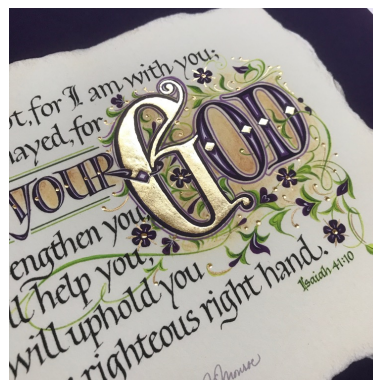 ot, for I am with you;
mayed, for
YOUR GOD
engthen you,
ll help you,
will uphold you
righteous right hand.
Isaiah 41:10
Monroe